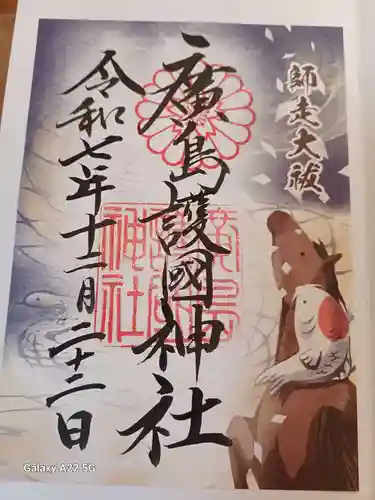 師走大祓
廣島護國神社
令和七年十二月二十二日
廣島
護國
神社
Galaxy A22 5G